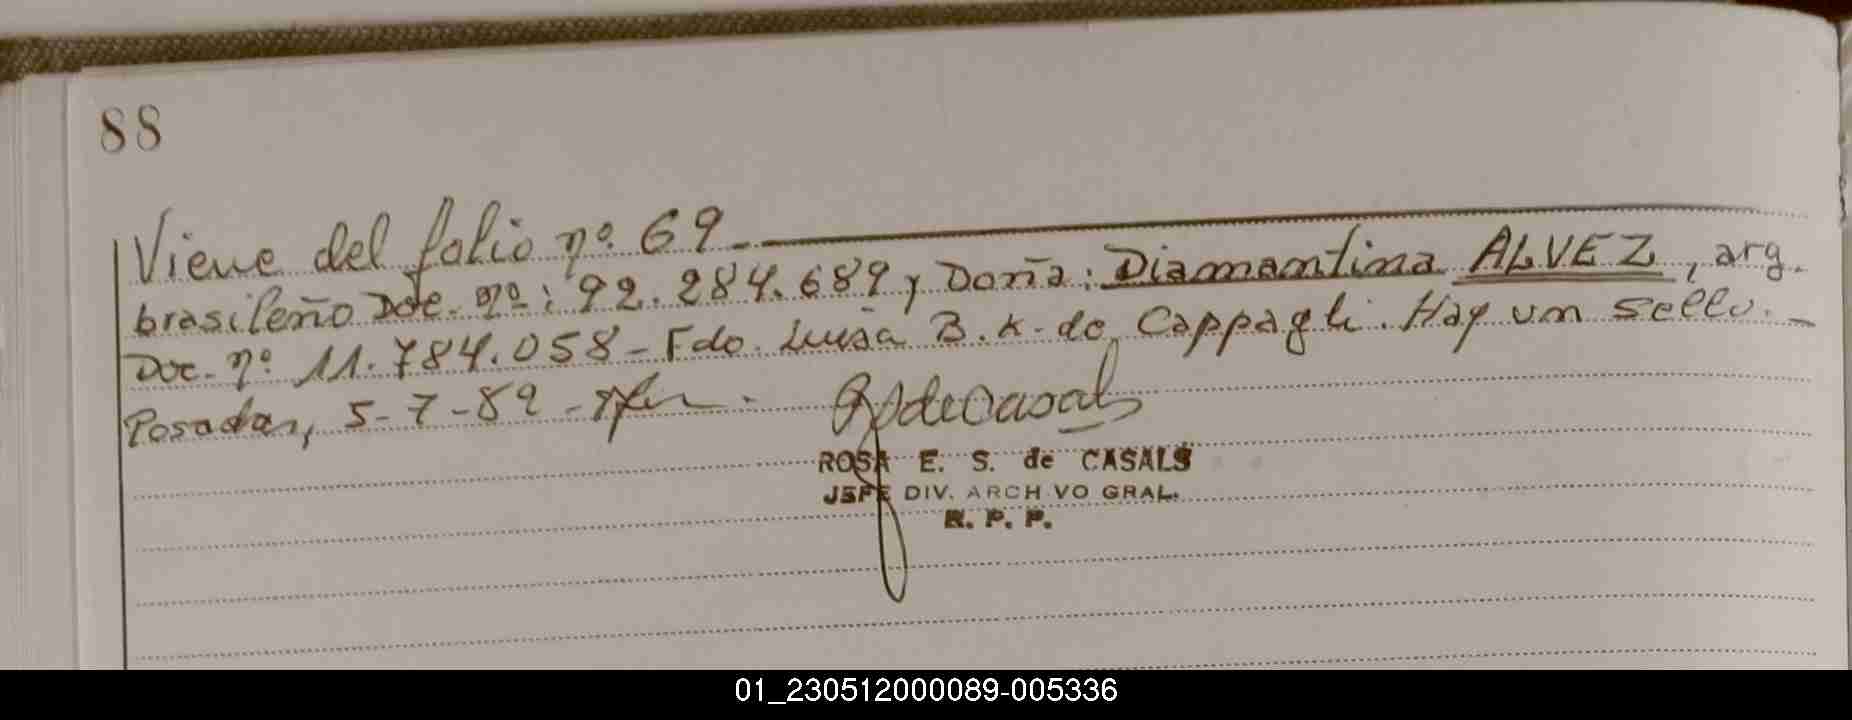 88
Viene del folio nº 69
brasileño Doc. nº: 92.284.689 y Doña: Diamantina ALVEZ, arg.
Doc. nº 11.784.058 - Fdo. Luisa B. K. de Cappagli. Hay un sello. -
Posadas, 5-7-89 -
ROSA E. S. de CASALS
JEFE DIV. ARCHIVO GRAL.
R. P. P.
01_230512000089-005336